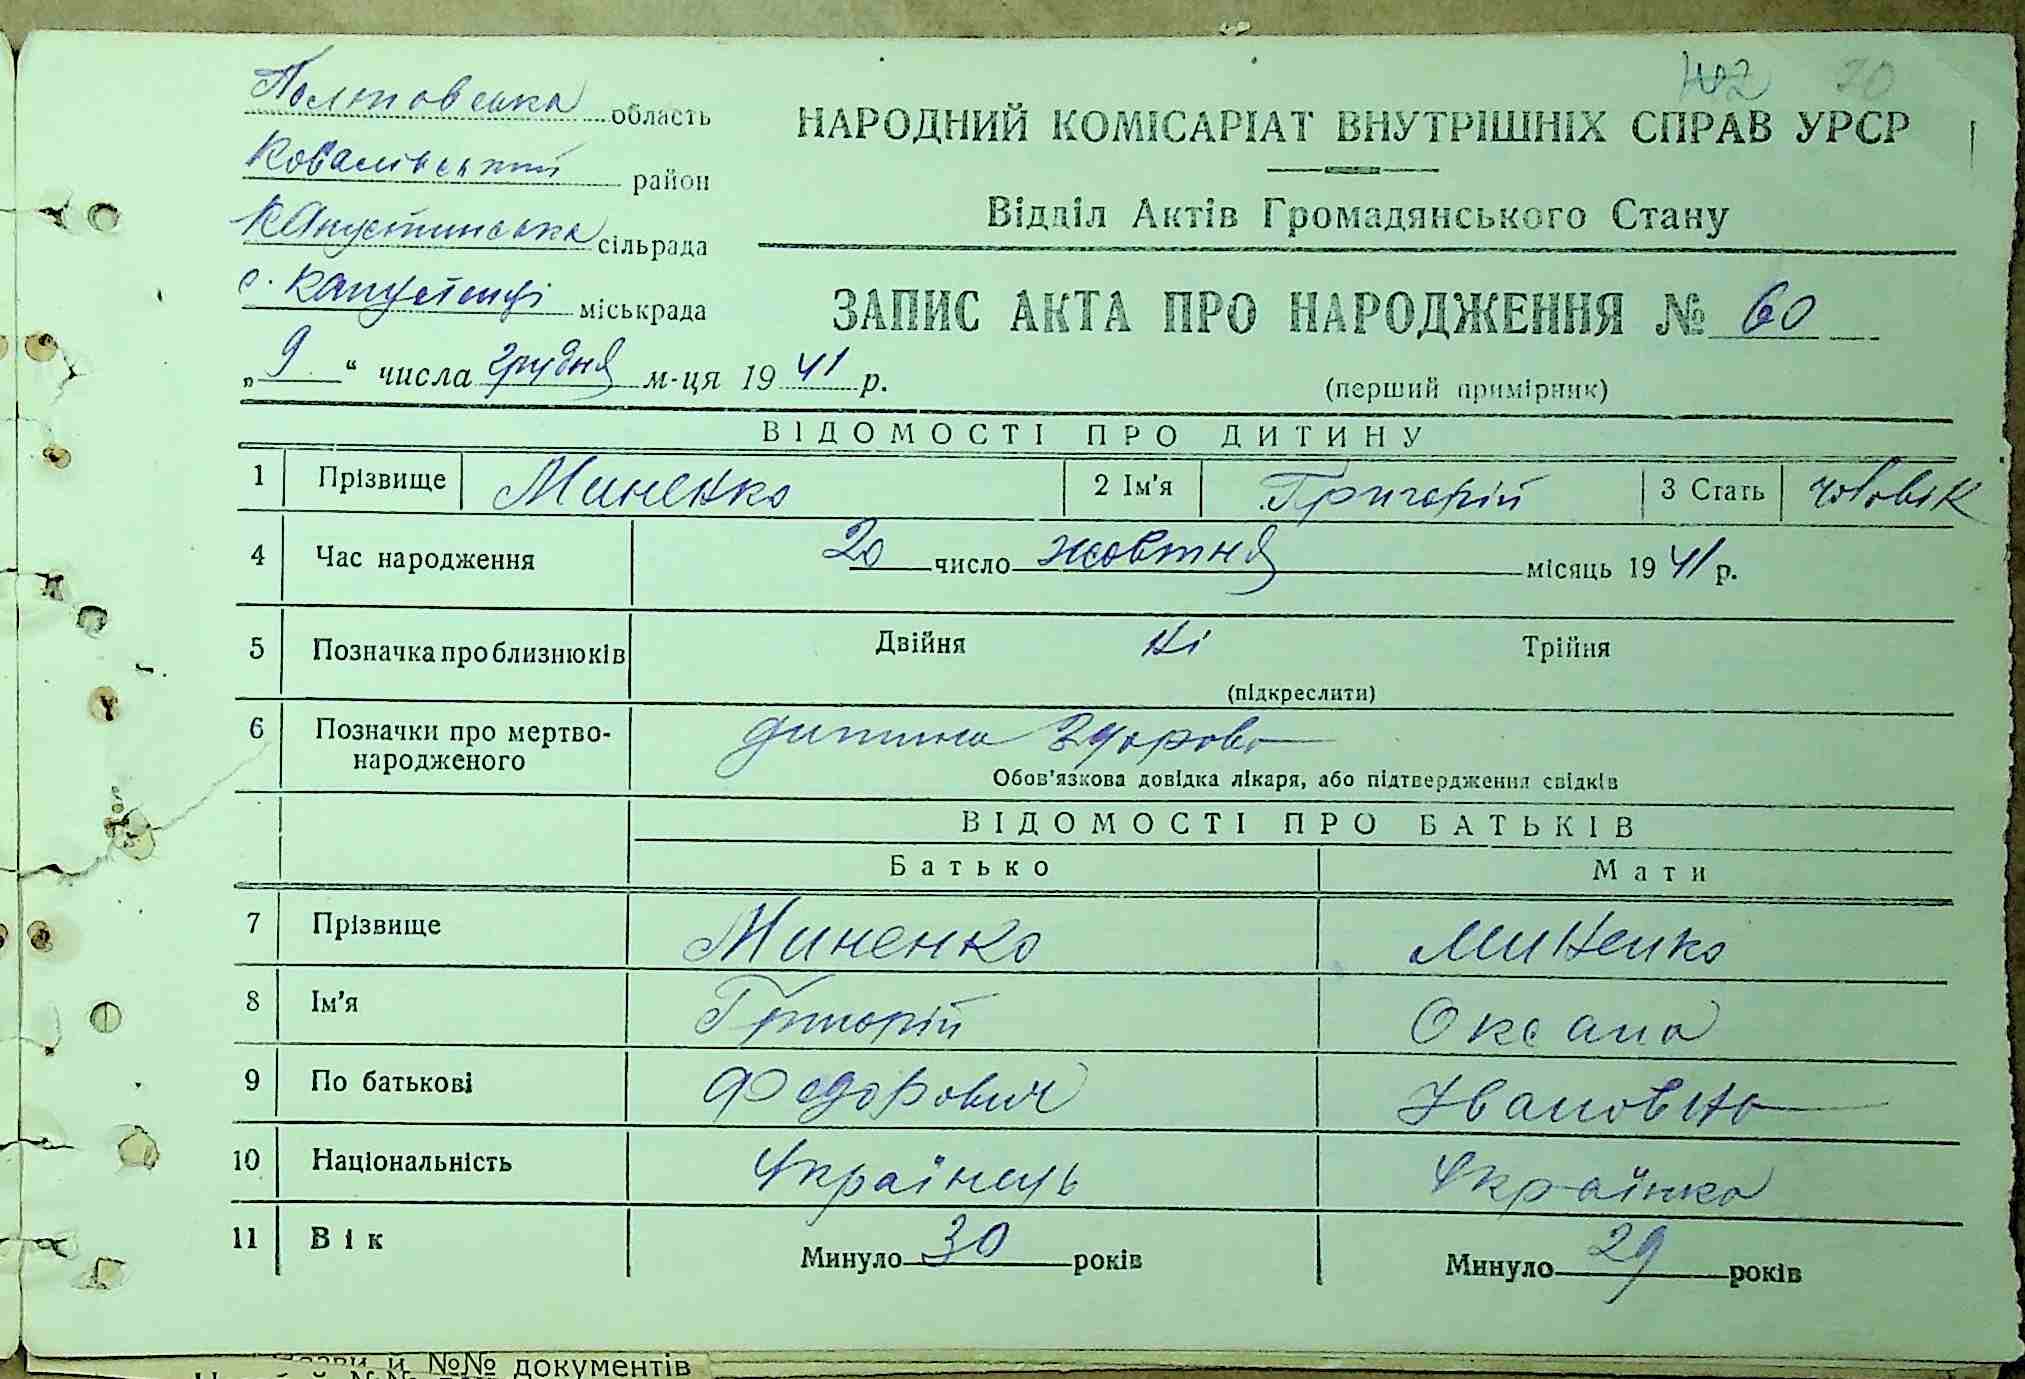 402 20
Полтовська область
Ковалівський район
Капустинська сільрада
с. Капустенці міськрада
„9“ числа грудня м-ця 1941 р.
НАРОДНИЙ КОМІСАРІАТ ВНУТРІШНІХ СПРАВ УРСР
Відділ Актів Громадянського Стану
ЗАПИС АКТА ПРО НАРОДЖЕННЯ № 60
(перший примірник)
ВІДОМОСТІ ПРО ДИТИНУ
1 Прізвище Миненко 2 Ім'я Григорій 3 Стать чоловік
4 Час народження 20 число жовтня місяць 1941 р.
5 Позначка про близнюків Двійня Ні Трійня
(підкреслити)
6 Позначки про мертво-
народженого
дитина здорова
Обов'язкова довідка лікаря, або підтвердження свідків
ВІДОМОСТІ ПРО БАТЬКІВ
Батько Мати
7 Прізвище Миненко Миненко
8 Ім'я Григорій Оксана
9 По батькові Федорович Івановна
10 Національність Українець Українка
11 Вік Минуло 30 років Минуло 29 років
№№ документів